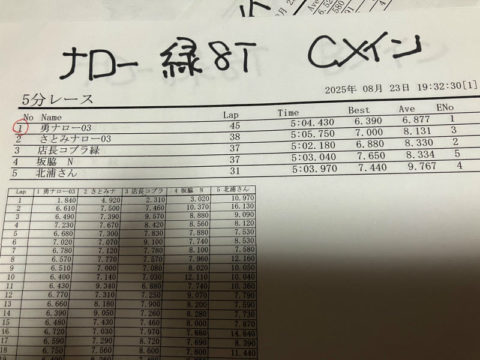 ナロー 緑 8T CXイン
2025年 08月 23日 19:32:30[1]
5分レース
No Name Lap Time Best Ave ENo
1 勇ナロー03 45 5:04.430 6.390 6.877 1
2 さとみナロー03 38 5:05.750 7.000 8.131 3
3 店長コブラ緑 37 5:02.180 6.880 8.330 2
4 坂脇 N 37 5:03.040 7.650 8.334 5
5 北浦さん 31 5:03.970 7.440 9.767 4
Lap 1 勇ナロー03 2 さとみナ 3 店長コブラ 4 坂脇 N 5 北浦さん
1 1.840 4.920 2.310 3.020 10.970
2 6.610 7.500 7.460 10.370 16.130
3 6.490 7.390 9.570 8.880 9.090
4 7.230 7.670 8.420 8.560 8.120
5 6.680 7.300 7.830 7.880 7.530
6 7.020 7.070 9.100 7.740 8.530
7 6.780 7.120 7.780 7.880 8.580
8 6.570 7.770 7.570 7.960 12.160
9 6.510 7.000 7.080 8.020 10.050
10 6.400 7.140 7.030 12.110
11 6.430 9.340 6.880 7.740 10.360
12 6.770 7.310 7.250 9.070 7.790
13 6.660 8.180 7.900 8.200 7.590
14 6.390 9.050 7.260 8.280 7.730
15 6.480 7.430 7.460 8.000 7.870
16 6.720 7.030 7.970 7.680
17 6.590 7.290 8.720 7.680 8.390
18 6.750 7.560 8.600 7.800 11.440